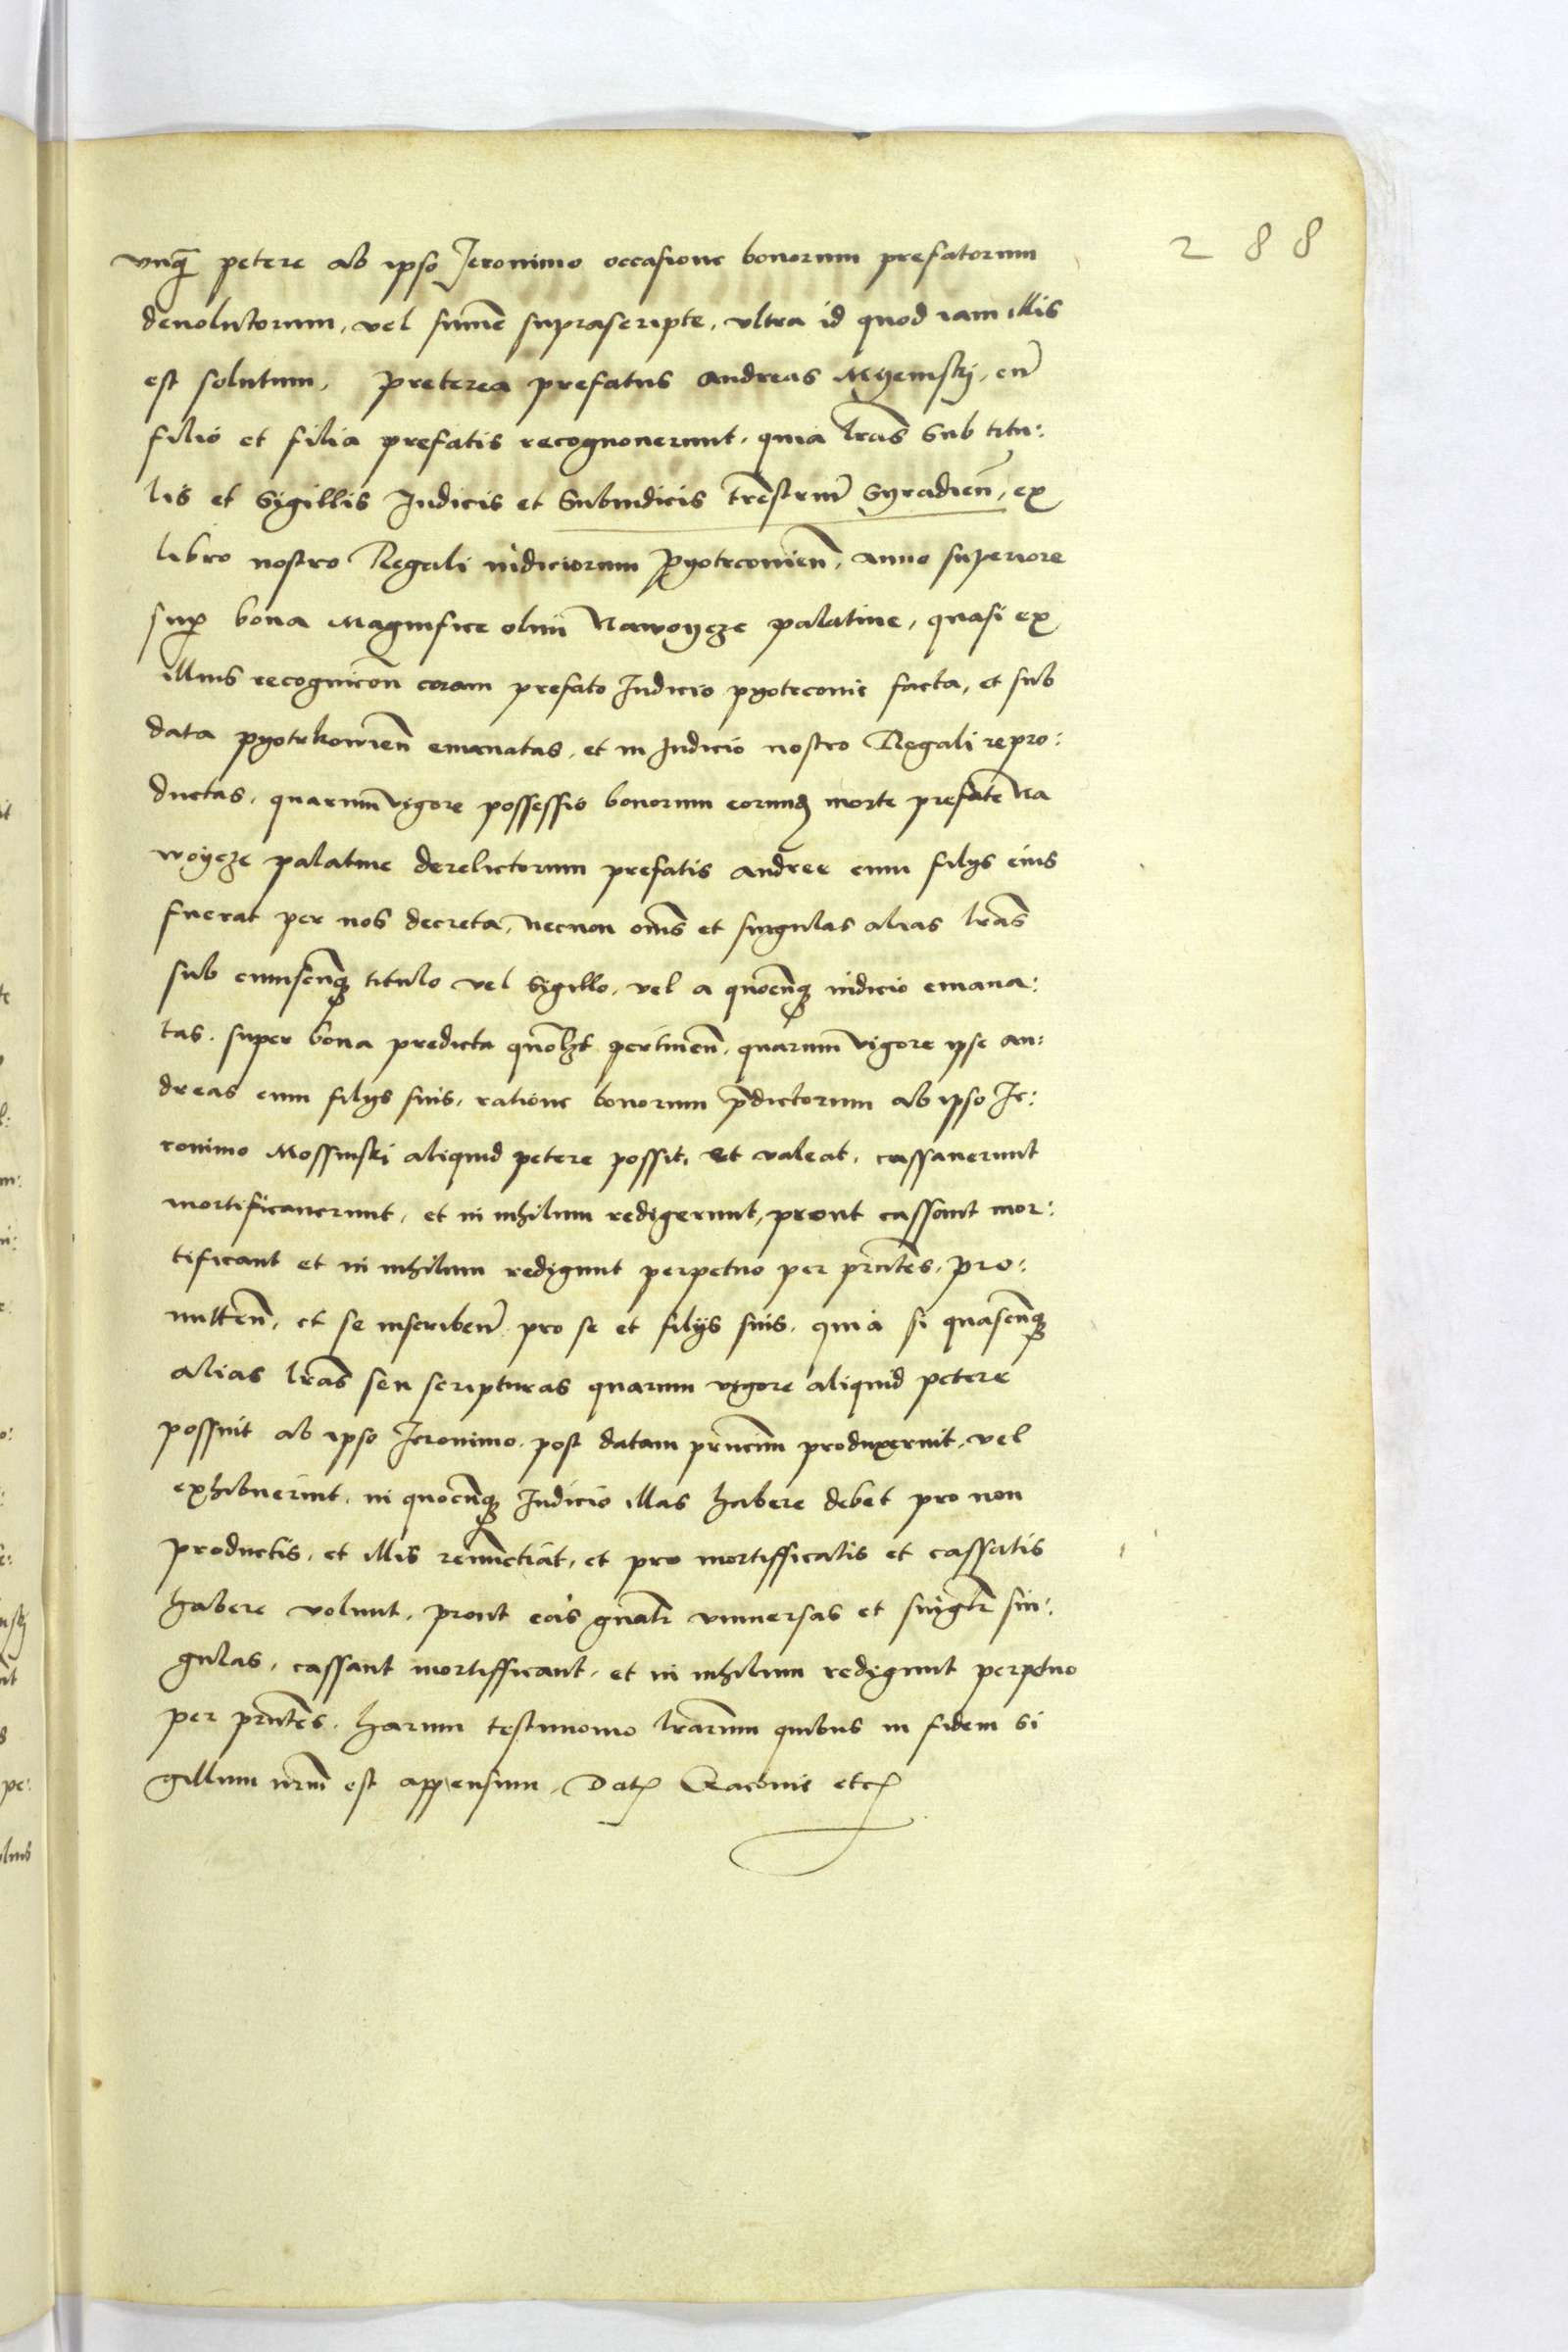 288
vnq̃ petere ab ipso Jeronimo occasione bonorum prefatorum
deuolutorum, vel sum̃e suprascripte, vltra id quod iam illis
est solutum, preterea prefatus Andreas Myemskj, cũ
filio et filia prefatis recognouerunt, quia lrãs sub titu:
lis et sigillis Judicis et Subiudicis tr̃estriũ Syradień, ex
libro nostro Regali iudiciorum pyotrcouień, anno superiore
sup̱ bona Magnifice olim Nawoycze palatine, quasi ex
illius recognicoñ coram prefato Judicio pyotrcouie facta, et sub
data pyotrkowień emanatas, et in Judicio nostro Regali repro:
ductas, quarum vigore possessio bonorum eorund̃ morte prefate Na
woycze palatine derelictorum prefatis Andree cum filys eius
fuerat per nos decreta, Necnon om̃s et singulas alias lrãs
sub cuiuscũq̃ titulo vel sigillo, vel a quocũq̃ iudicio emana:
tas, super bona predicta quoľzt pertineñ, quarum vigore ipse An:
dreas cum filys suis, ratione bonorum p̃dictorum ab ipso Je:
ronimo Mossinski aliquid petere possit, et valeat, cassauerunt
mortificauerunt, et in nihilum redigerunt, prout cassant mor:
tificant et in nihilum redigunt perpetuo per p̃ntes, pro:
mitteñ, et se inscribeñ pro se et filijs suis, quia si quascũq̃
alias lrãs seu scripturas quarum vigore aliquid petere
possint ab ipso Jeronimo, post datam p̃ncium produxerint, vel
exhibuerint, in quocũq̃ Judicio illas habere debet pro non
productis, et illis renunctiãt, et pro mortifficatis et cassatis
habere volunt, prout eas gñalr̃ vniuersas et singlr̃ sin:
gulas, cassant mortifficant, et in nihilum redigunt perpetuo
per p̃ntes, harum testimonio lrãrum quibus in fidem si
gillum nrm̃ est appensum, Dat̃ Cracouie etc̃